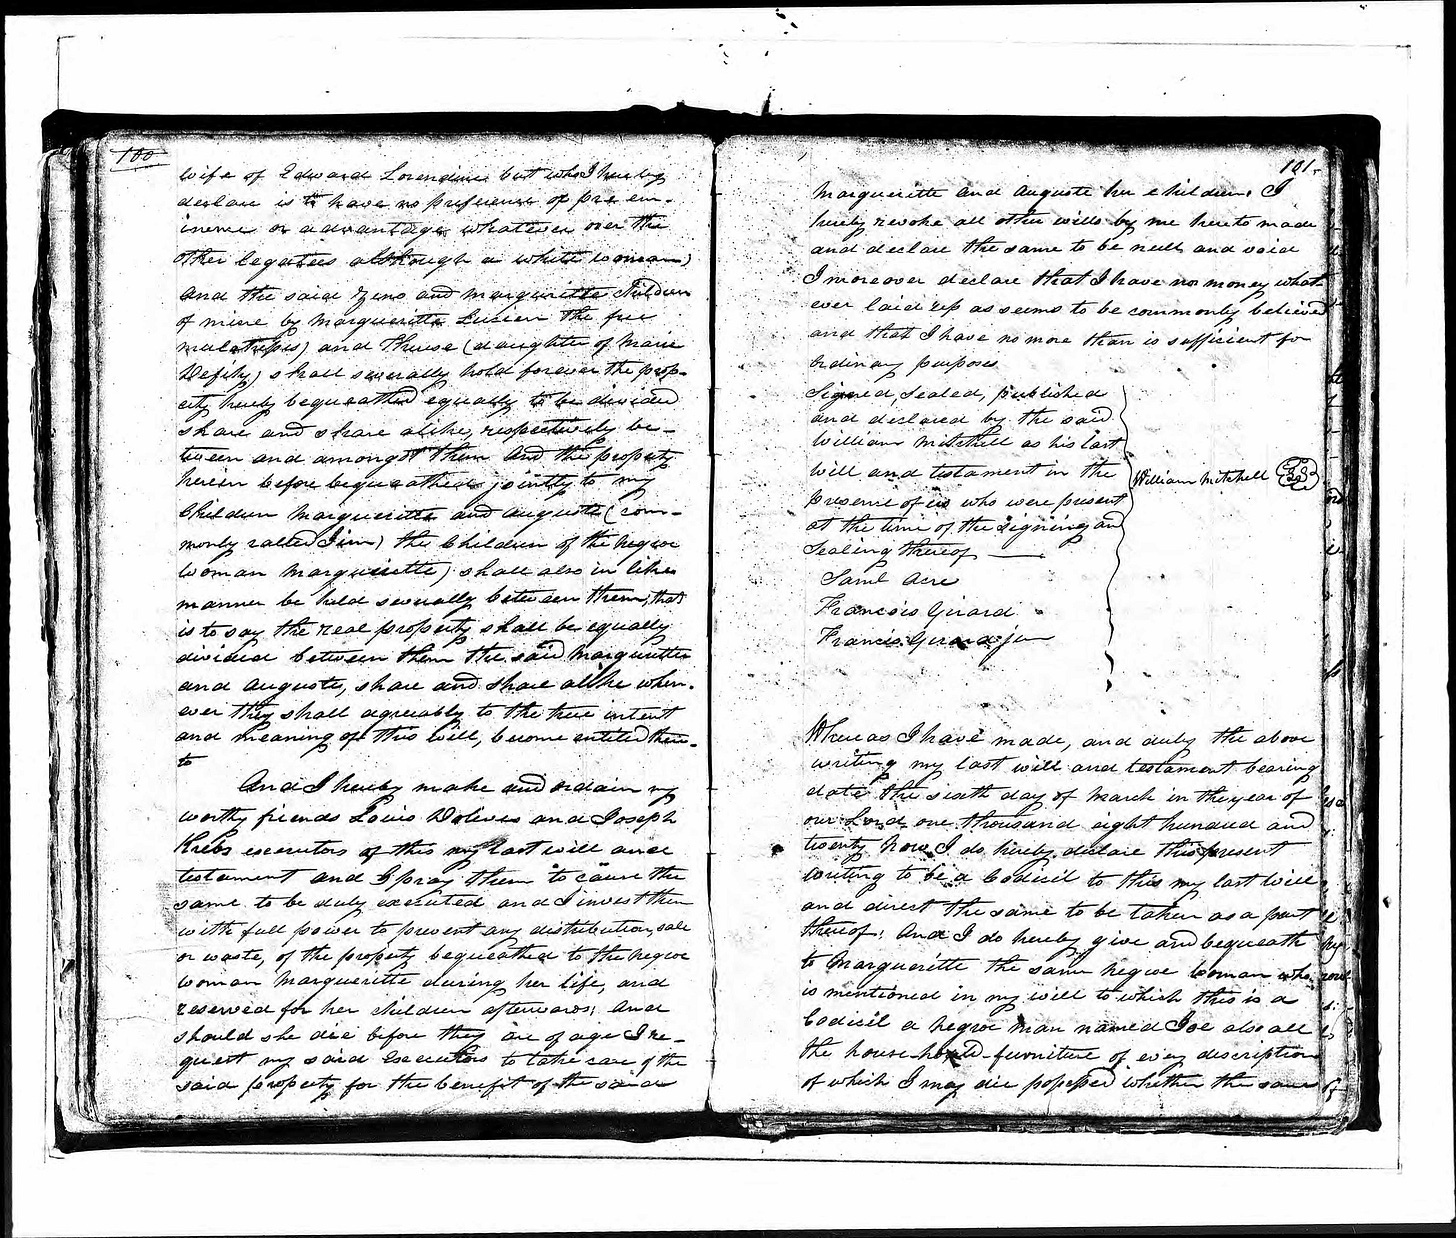 100
wife of Edward Lorendine but who I hereby
declare is to have no preference of pre em-
inence or advantage whatever over the
other legatees although a white woman)
and the said Zeno and Marguerite Children
of mine by Marguerite Lusien the free
mulatress) and Therese (daughter of Marie
shall severally hold forever the prop-
erty hereby bequeathed equally to be divided
share and share alike, respectively be-
tween and amongst them And the property
herein before bequeathed jointly to my
Children Marguerite and Auguste (com-
monly called Jim) the Children of the negroe
woman Marguerite) shall also in like
manner be held severally between them, that
is to say the real property shall be equally
divided between them the said Marguerite
and Auguste, share and share alike when-
ever they shall agreeably to the true intent
and meaning of this will, become entitled there-
to
And I hereby make and ordain my
worthy friends Louis and Joseph
Krebs executors of this my last will and
testament and I pray them to cause the
same to be duly executed and I invest them
with full power to prevent any distribution, sale
or waste, of the property bequeathed to the negroe
woman Marguerite during her life, and
reserved for her children afterwards; and
should she die before they are of age I re-
quest my said Executors to take care of the
said property for the benefit of the said
101.
Marguerite and Auguste her children. I
hereby revoke all other wills by me hereto made
and declare the same to be null and void
I moreover declare that I have no money what
ever laid up as seems to be commonly believed
and that I have no more than is sufficient for
ordinary purposes
Signed, Sealed, published
and declared by the said
William Mitchell as his last
will and testament in the
presence of us who were present
at the time of the signing and
Sealing thereof
William Mitchell
Saml Acre
Francois Girard
Francis Girard jun
Whereas I have made, and duly the above
writing my last will and testament bearing
date the sixth day of March in the year of
our Lord one thousand eight hundred and
twenty Now I do hereby declare this present
writing to be a Codicil to this my last Will
and direct the same to be taken as a part
thereof: And I do hereby give and bequeath
to Marguerite the same negroe woman who
is mentioned in my will to which this is a
Codicil a negroe man named Joe also all
the house-hold-furniture of every description
of which I may die possessed whether the same